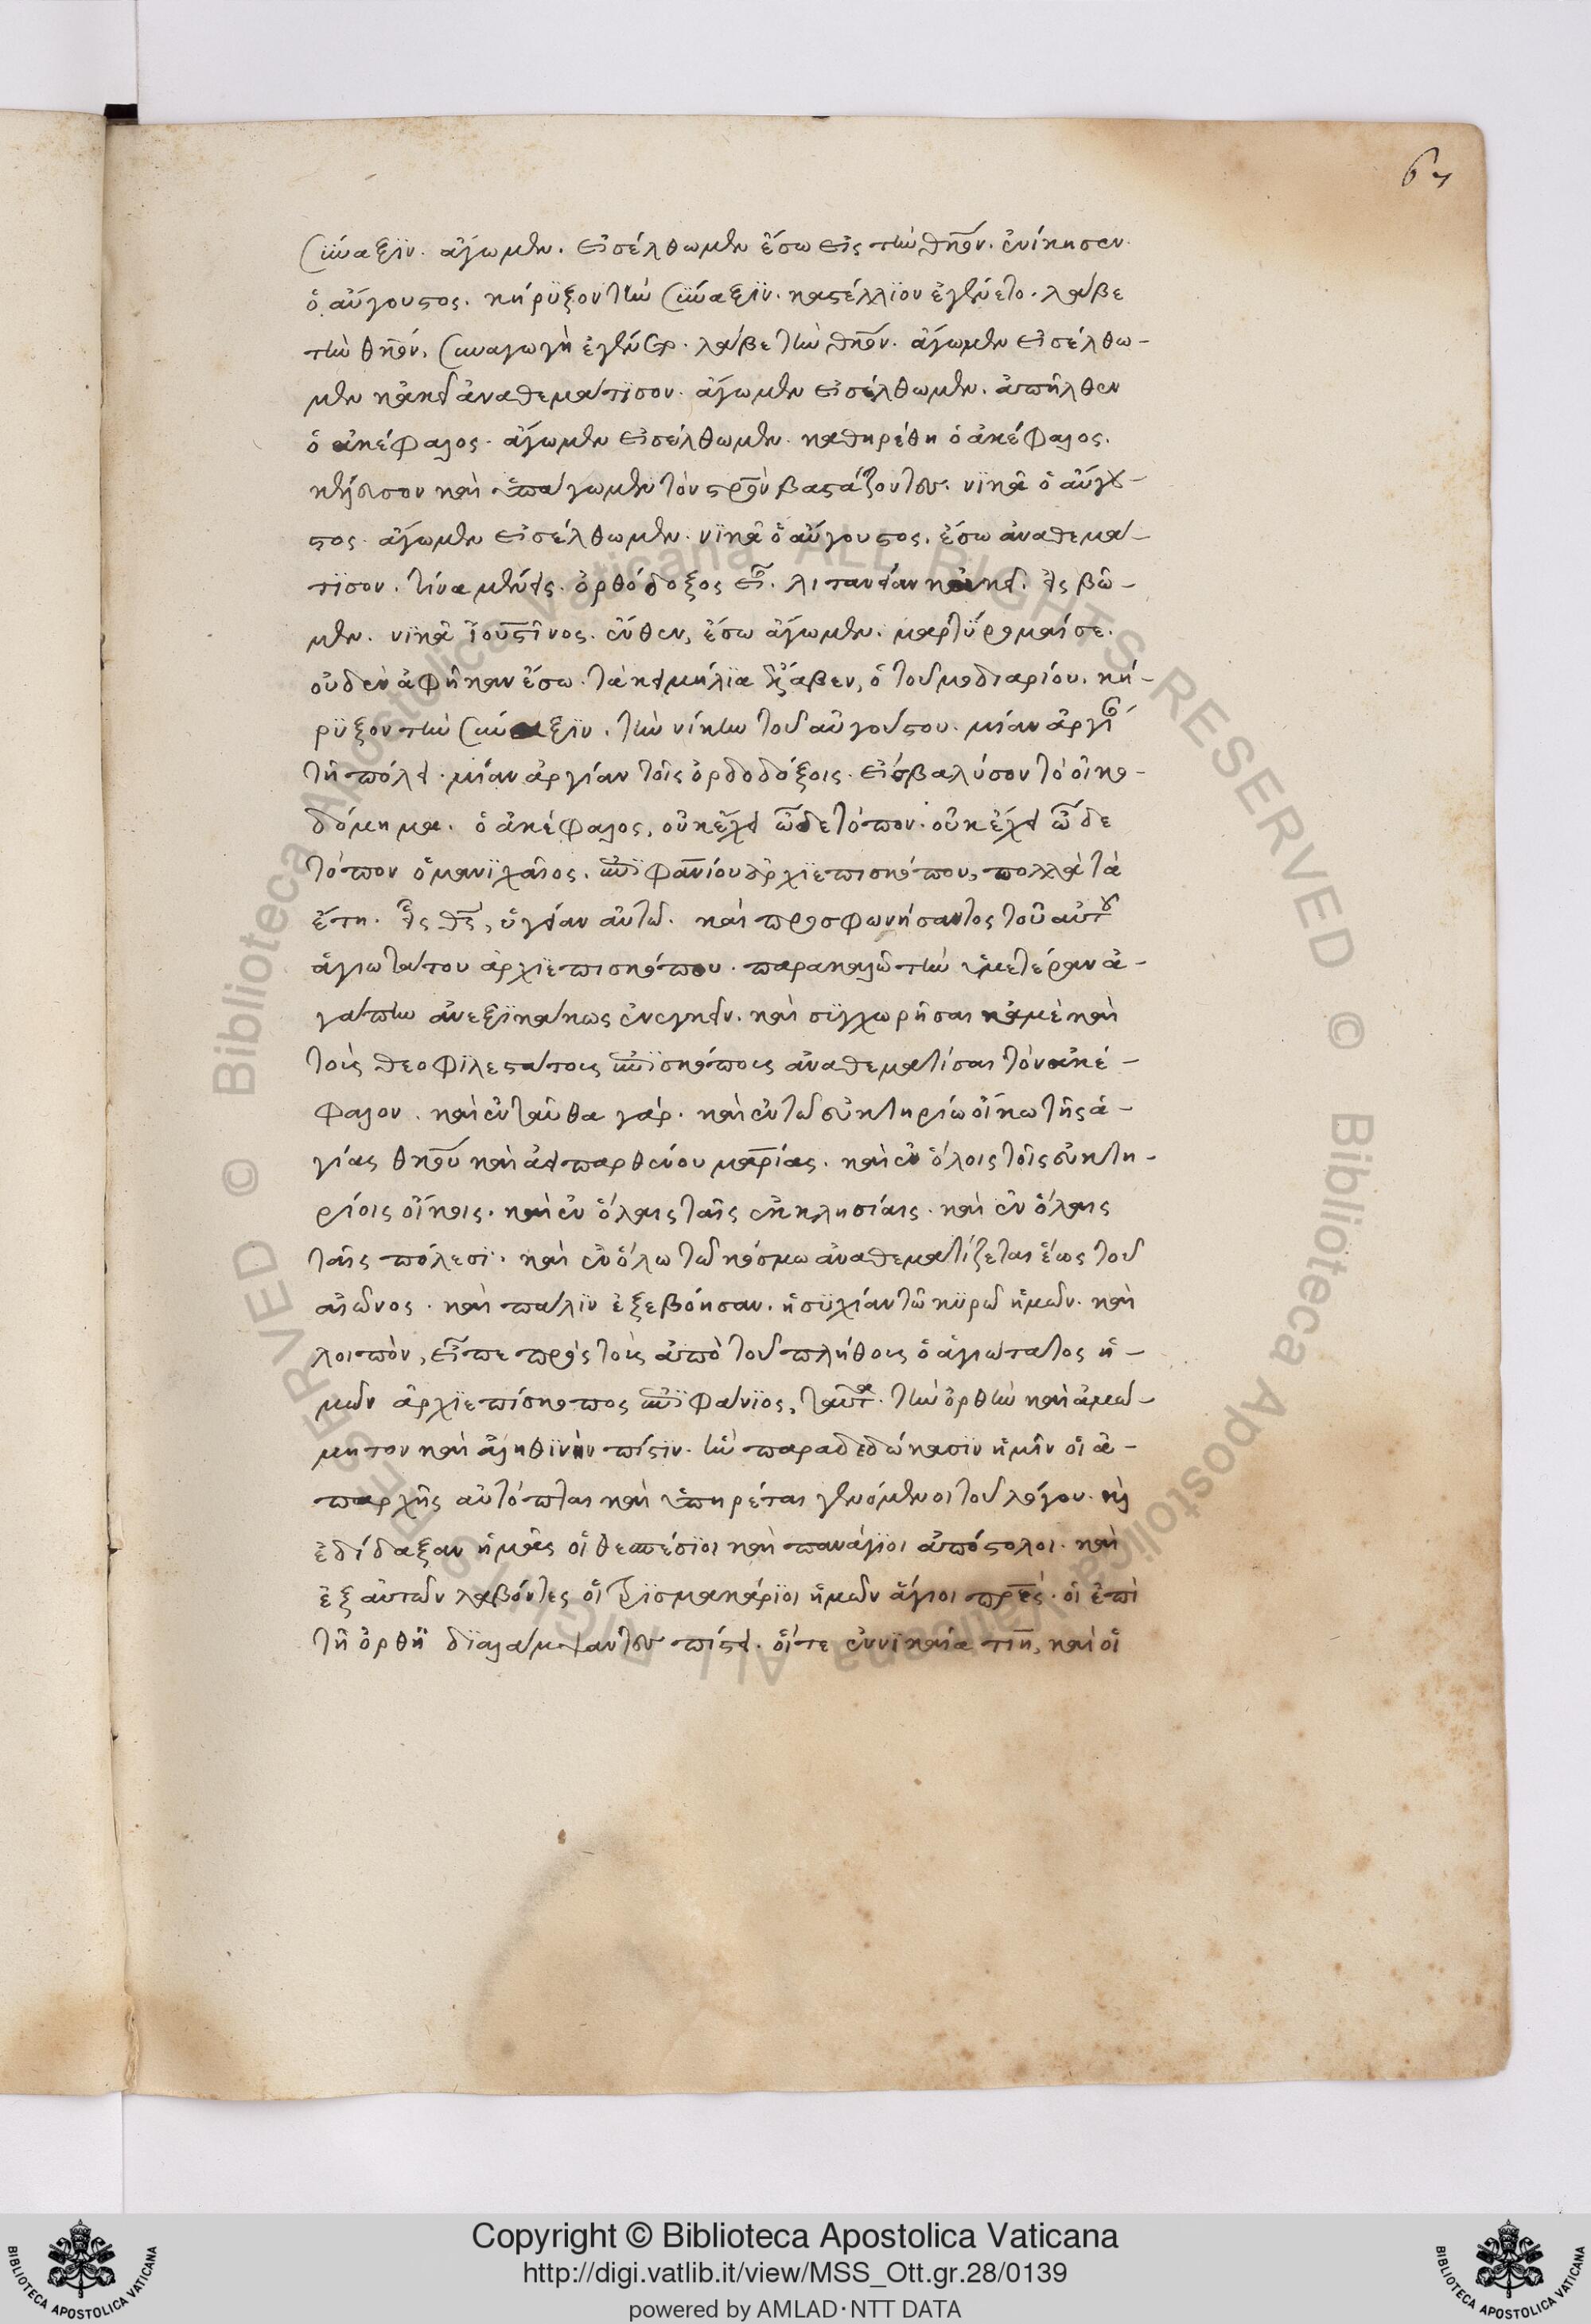 67
σύναξϊν. ἄγωμεν. εἰσέλθωμεν ἔσω εἰς τὴν θη̅κ̅ον. ἐνίκησεν
ὁ αὔγουστος. κήρϋξον τὴν σύναξϊν. καστέλλϊον ἐγένετο. λάβε
τὴν θκ̅ον. συναγωγὴ ἐγένετο. λάβε τὴν θκ̅ον. ἄγωμεν εἰσέλθω-
μεν κἀκεῖ ἀναθεμάτϊσον. ἄγωμεν εἰσέλθωμεν. ἀπῆλθεν
ὁ ἀκέφαλος. ἄγωμεν εἰσέλθωμεν. καθηρέθη ὁ ἀκέφαλος.
καὶ ὑπάγωμεν τὸν στρ̅ον βαστάζοντες. νϊκᾶ ὁ αὔγου-
στος. ἄγωμεν εἰσέλθωμεν. νϊκᾶ ὁ αὔγουστος. ἔσω ἀναθεμά-
τϊσον. τίνα μένεις. ὀρθόδοξος εἶ. λιτανείαν κἀκεῖ. εἰς βῶ-
μεν. νϊκᾶ ἰουστῖνος. ἔνθεν, ἔσω ἄγωμεν. μαρτϋρομαί σε.
οὐδὲν ἀφῆκαν ἔσω. τὰ κειμήλϊα ἔλαβεν, ὁ τοῦ μοδιαρίου. κή-
ρϋξον τὴν σύναξϊν. τὴν νίκην τοῦ αὐγούστου. μίαν ἀργίαν
τῇ πόλει. μίαν ἀργίαν τοῖς ὀρθοδόξοις. εἰσβαλύσον τὸ οἰκο-
δόμημα. ὁ ἀκέφαλος, οὐκ ἔχει ὧδε τόπον. οὐκ ἔχει ὧδε
τόπον ὁ μανϊχαῖος. ἐπϊφανίου ἀρχϊεπισκόπου, πολλὰ τὰ
ἔτη. εἷς θς̅, ὑγείαν αὐτῶ. καὶ προσφωνήσαντος τοῦ αὐτοῦ
ἁγιωτάτου ἀρχϊεπισκόπου. παρακαλῶ τὴν ὑμετέραν ἀ-
γάπην ἀνεξϊκάκως ἐνεγκεῖν. καὶ σϋγχωρῆσαι κἀμὲ καὶ
τοὺς θεοφϊλεστάτους ἐπϊσκόπους ἀναθεματίσαι τὸν ἀκέ-
φαλον. καὶ ἐνταῦθα γάρ. καὶ ἐν τῶ εὐκτηρίω οἴκω τῆς ἁ-
γίας θκ̅ου καὶ ἀειπαρθένου μαρίας. καὶ ἐν ὅλοις τοῖς εὐκτη-
ρίοις οἴκοις. καὶ ἐν ὅλαις ταῖς ἐκκλησίαις. καὶ ἐν ὅλαις
ταῖς πόλεσϊ. καὶ ἐν ὅλω τῶ κόσμω ἀναθεματίζεται ἕως τοῦ
αἰῶνος. καὶ πάλϊν ἐξεβόησαν. ἡσϋχίαν τῶ κϋρῶ ἡμῶν. καὶ
λοιπὸν, εἶπε πρὸς τοὺς ἀπὸ τοῦ πλήθους ὁ ἁγιώτατος ἡ-
μῶν ἀρχϊεπίσκοπος ἐπϊφάνϊος, ταῦτα. τὴν ὀρθὴν καὶ ἀμώ-
μητον καὶ ἀληθϊνὴν πίστϊν. ἣν παραδεδώκασϊν ἡμῖν οἱ ἀ-
παρχῆς αὐτόπται καὶ ὑπηρέται γενόμενοι τοῦ λόγου. καὶ
ἐδίδαξαν ἡμᾶς οἱ θεσπέσϊοι καὶ πανάγϊοι ἀπόστολοι. καὶ
ἐξ αὐτῶν λαβόντες οἱ τρϊσμακάρϊοι ἡμῶν ἅγιοι πρ̅ες. οἱ ἐπὶ
τῇ ὀρθῇ δϊαλάμψαντες πίστει. οἵ τε ἐν νϊκαία τϊη, καὶ οἱ
Copyright © Biblioteca Apostolica Vaticana
http://digi.vatlib.it/view/MSS_Ott.gr.28/0139
powered by AMLAD·NTT DATA